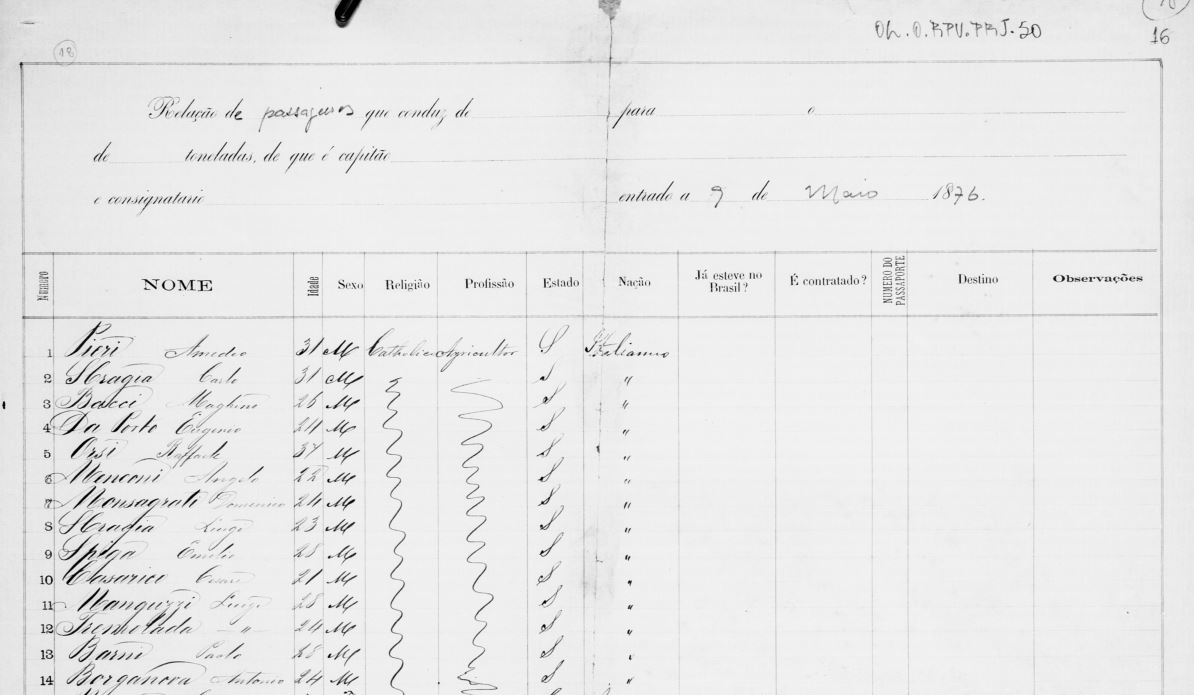 16
OL.O.RPV.PRJ.50
18
Relação de passageiros que conduz de para o
de toneladas, de que é capitão
e consignatario entrado a 9 de Maio 1876.
Número NOME Idade Sexo Religião Profissão Estado Nação Já esteve no Brasil? É contratado? NUMERO DO PASSAPORTE Destino Observações
1 Pieri Amedeo 31 M Catholica Agricultor S Italianno
2 Stragia Carlo 31 M S "
3 Bacci 26 M S "
4 Da Porto Eugenio 24 M S "
5 Orsi Raffaele 37 M S "
6 Menconi Angelo 22 M S "
7 Monsagrati Domenico 24 M S "
8 Stragia Luigi 23 M S "
9 Spiga Emilio 28 M S "
10 Casarico Cesare 21 M S "
11 Manguzzi Luigi 28 M S "
12 Tremolada " 24 M S "
13 Barni Paolo 28 M S "
14 Borganova Antonio 24 M S "